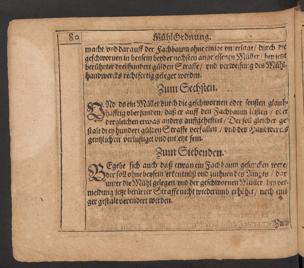 80 Mühl Ordnung.
macht vnd darauff der Fachbaum ohne einige vnderlage / durch die
geschwornen in beysein beyder Müller / bey jetzt
berührter dreihundert gülden Straffe / vnd verweisung des Mühl
handwercks rechtfertig geleget werden.
Zum Sechsten.
VNd do ein Müller durch die geschwornen oder sonsten glaub-
hafftig vberfunden / daß er auff den Fachbaum
dergleichen etwas anders auffgehefftet / Der soll gleicher ge-
stalt drey hundert gülden Straffe verfallen / vnd des Handwercks
gentzlichen verlustiget vnd sein.
Zum Siebenden.
BEgebe sich auch daß etwan ein Fachbaum gesuncken were /
Der soll ohne beysein / erkentnüß vnd zuthuen des / dar-
unter die Mühl gelegen / vnd der geschwornen Müller / bey ver-
meidung jetzt berürter Straffe nicht wiederumb erhöhet / noch eini-
ger gestalt verendert werden.